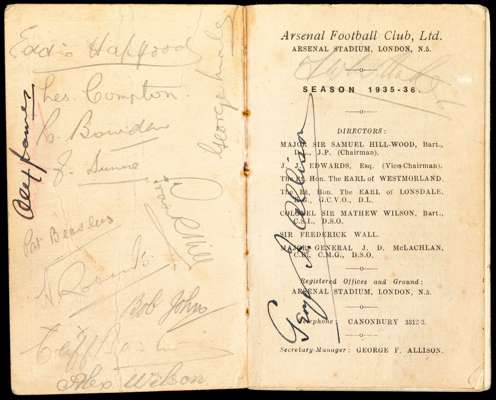 Eddie Hapgood
Les. Compton.
R. Bowden
J. Dunne
Alex James
George Male
Frank Hill
Pat Beasley
Bob John
Cliff Bastin
Alex Wilson
Arsenal Football Club, Ltd.
ARSENAL STADIUM, LONDON, N.5.
SEASON 1935-36.
DIRECTORS:
MAJOR SIR SAMUEL HILL-WOOD, Bart.,
J.P. (Chairman).
J. EDWARDS, Esq. (Vice-Chairman).
The Rt. Hon. The EARL of WESTMORLAND.
The Rt. Hon. The EARL of LONSDALE,
G.C.V.O., D.L.
COLONEL SIR MATHEW WILSON, Bart.,
C.S.I., D.S.O.
SIR FREDERICK WALL.
MAJOR-GENERAL J. D. McLACHLAN,
C.B., C.M.G., D.S.O.
George F. Allison
Registered Offices and Ground:
ARSENAL STADIUM, LONDON, N.5.
Telephone: CANONBURY 3312-3.
Secretary-Manager: GEORGE F. ALLISON.